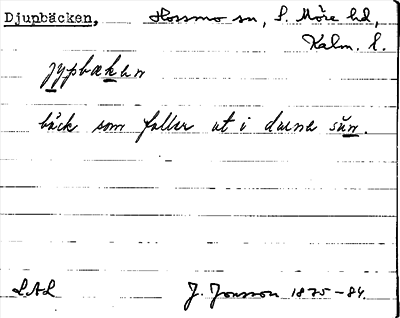 Djupbäcken, Hossmo sn, S. Möre hd,
Kalm. l.
jypbæken
bäck som faller ut i denna sn.
LAL J. Jonsson 1875-84.